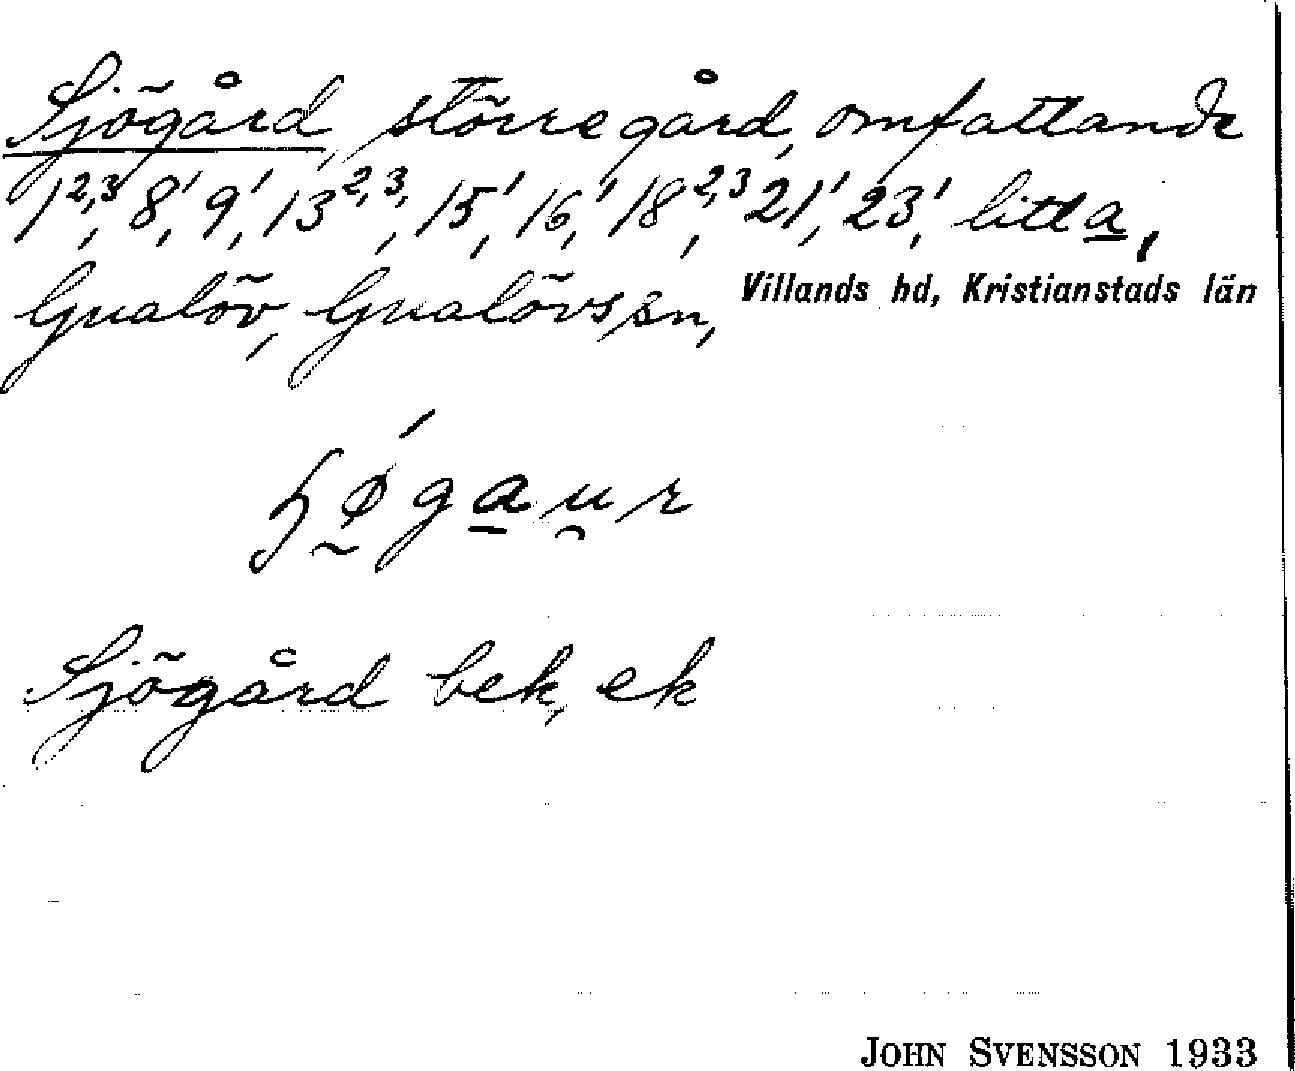 Sjögård, större gård, omfattande
1²,³, 8¹, 9¹, 13²,³, 15¹, 16¹, 18²,³, 21¹, 23¹, litt a,
Gualöv, Gualövs sn, Villands hd, Kristianstads län
Sjögård bek, ek
JOHN SVENSSON 1933